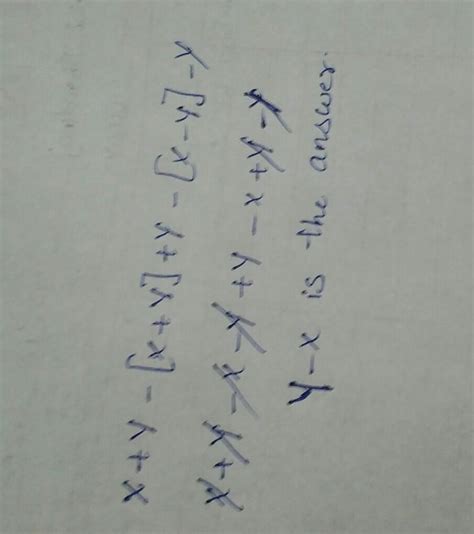 x + y - [x + y] + y - [x - y] - y
x + y - x - y + y - x + y - y
y - x is the answer.